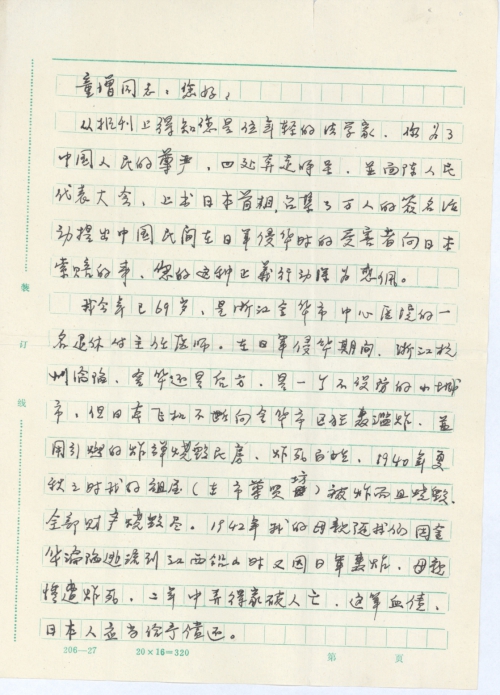 童增同志：您好，
从报刊上得知您是位年轻的法学家，您为了
中国人民的尊严，四处奔走呼号，并向陈人民
代表大会，上书日本首相，召集了万人的签名活
动提出中国民间在日军侵华时的受害者向日本
索赔的事，您的这种正义行动深为感佩。
我今年已69岁，是浙江金华市中心医院的一
名退休付主任医师，在日军侵华期间，浙江杭
州沦陷，金华还是后方，是一个不设防的小城
市，但日本飞机不断向金华市已狂轰滥炸，并
用引燃的炸弹烧毁民房，炸死百姓，1940年夏
秋之时我的祖屋（在市 坊）被炸而且烧毁，
全部财产烧毁尽。1942年我的母亲随我们因金
华沦陷逃难到江西铅山时又因日军轰炸，母亲
惨遭炸死，二年中弄得家破人亡，这笔血债，
日本人应当给予偿还。
装
订
线
206—27 20×16=320 第 页